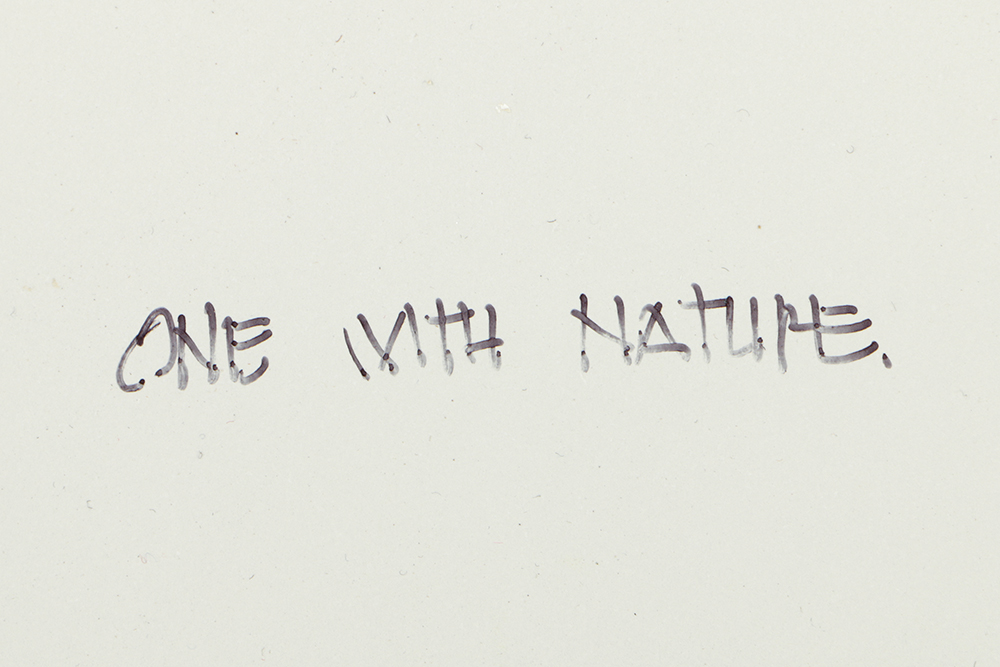 ONE WITH NATURE.